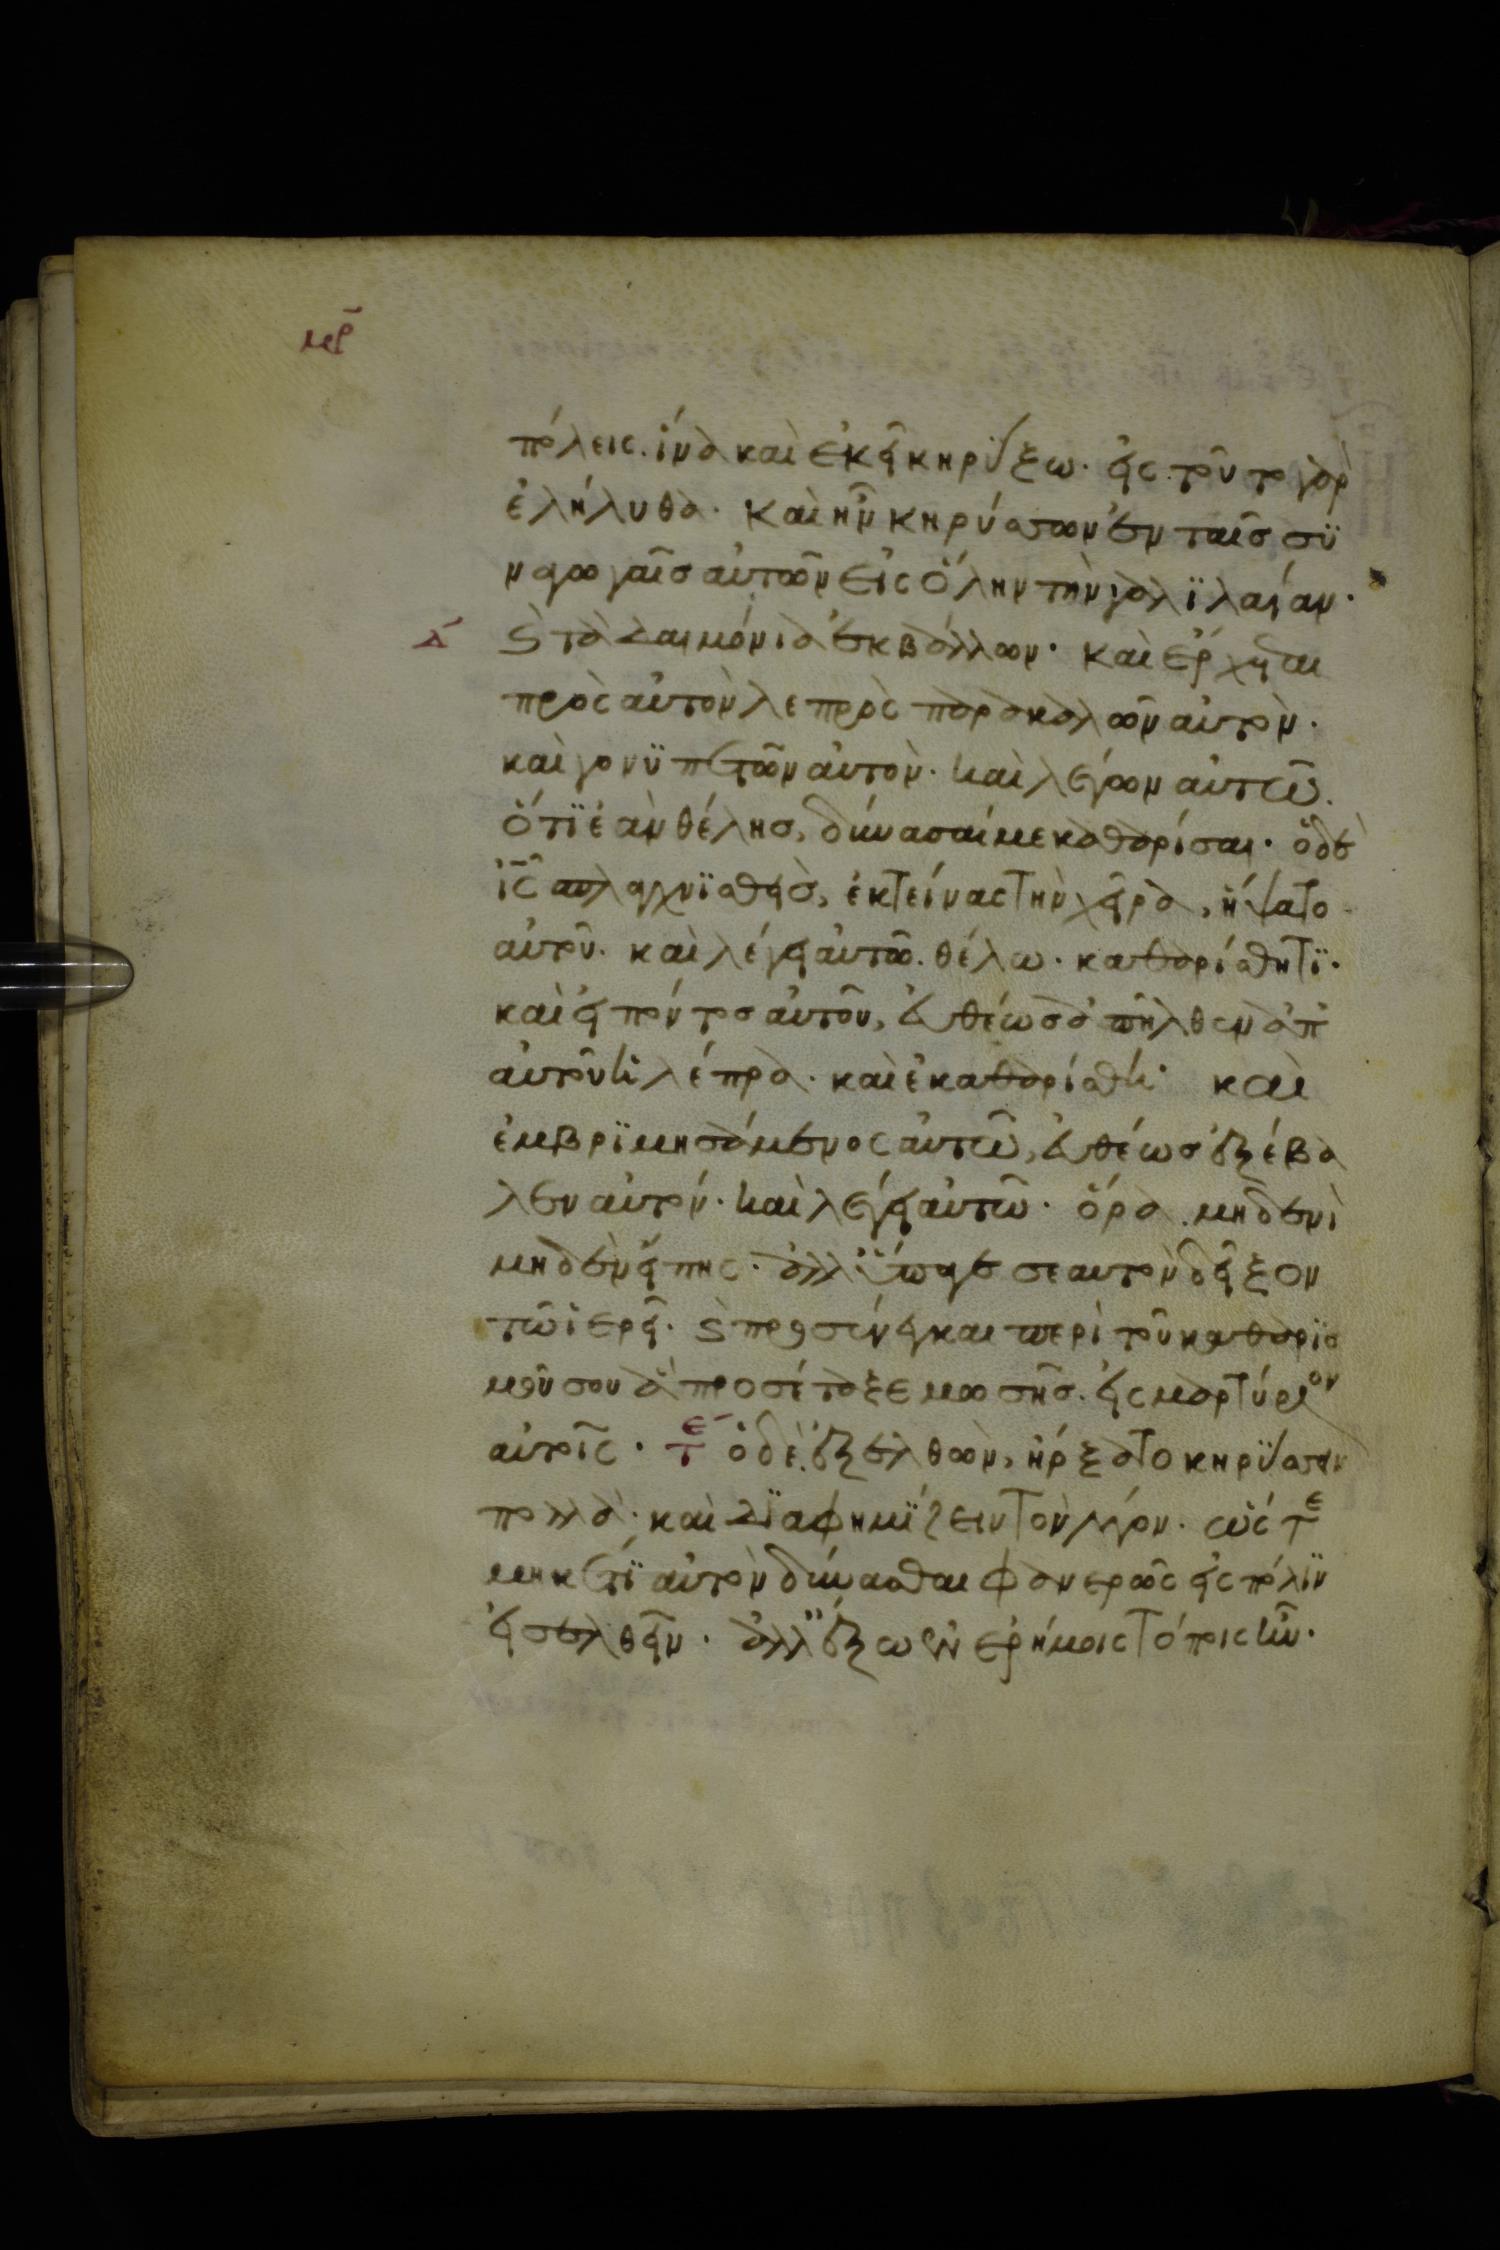 μρ̄
πόλεις. ἵνα καὶ ἐκεῖ κηρύξω· εἰς τοῦτο γὰρ
ἐλήλυθα· καὶ ἦν κηρύσσων ἐν ταῖς συ
ναγωγαῖς αὐτῶν εἰς ὅλην τὴν γαλϊλαίαν·
δ́ ϛ̀ τὰ δαιμόνια ἐκβάλλων· καὶ ἔρχεται
πρὸς αὐτὸν λεπρὸς παρακαλῶν αὐτὸν·
καὶ γονϋπετῶν αὐτὸν· καὶ λέγων αὐτῶ·
ὅτϊ ἐὰν θέλης, δύνασαί με καθαρίσαι· ὁ δὲ
ἰς̄ σπλαγχνϊσθεὶς, ἐκτείνας τὴν χεῖρα, ἥψατο
αὐτοῦ· καὶ λέγει αὐτῶ· θέλω· καθαρίσθητϊ·
καὶ εἰπόντος αὐτοῦ, εὐθέως ἀπῆλθεν ἀπ'
αὐτοῦ ἡ λέπρα· καὶ ἐκαθαρίσθη· καὶ
ἐμβρϊμησάμενος αὐτῶ, εὐθέως ἐξέβα
λεν αὐτόν· καὶ λέγει αὐτῶ· ὅρα μηδενὶ
μηδὲν εἴπης· ἀλλ' ὕπαγε σεαυτὸν δεῖξον
τῶ ἱερεῖ· ϛ̀ προσένεγκαι περὶ τοῦ καθαρϊσ
μοῦ σου ἃ προσέταξε μωσῆς· εἰς μαρτύριον
αὐτοῖς· τε̄ ὁ δὲ ἐξελθὼν, ἤρξατο κηρύσσειν
πολλὰ· καὶ δϊαφημίζειν τὸν λόγον· ὥστε
μηκέτϊ αὐτὸν δύνασθαι φανερῶς εἰς πόλϊν
εἰσελθεῖν· ἀλλ' ἔξω ἐν ἐρήμοις τόποις ἦν·